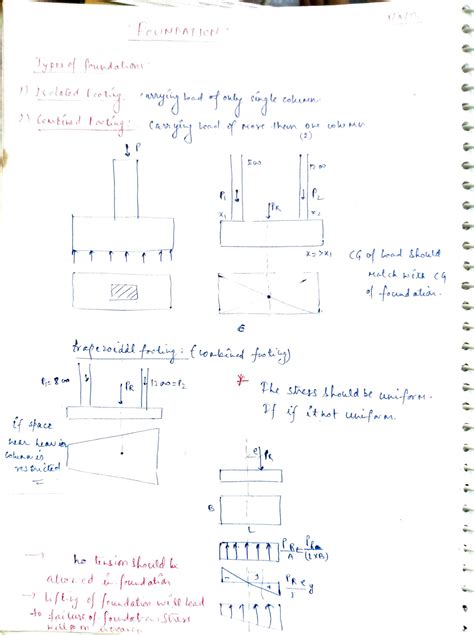 FOUNDATION
Types of foundation:
1) Isolated footing: carrying load of only single column.
2) Combined footing: carrying load of more than one column
(2)
P
800
1200
P1
PR
P2
x1
x2
x2 > x1
CG of load should
match with CG
of foundation.
trapezoidal footing: (combined footing)
P1 = 800
PR
1200 = P2
if space
near heavier
column is
restricted
* The stress should be uniform.
If it not uniform.
e
PR
B
L
PR/A
PR e y
→ No tension should be
allowed in foundation
→ lifting of foundation will lead
to failure of foundation stress